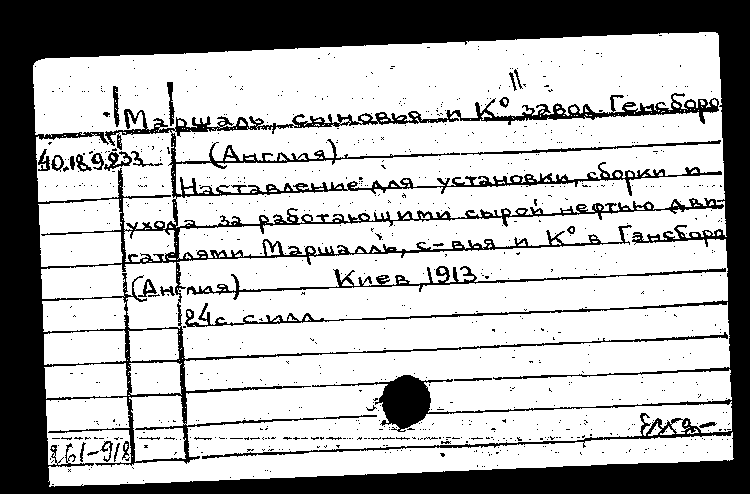 Маршаль, сыновья и К°, завод. Генсборо
40.18.9.233 (Англия).
Наставление для установки, сборки и
ухода за работающими сырой нефтью дви-
гателями Маршалль, с-вья и К° в Гансборо
(Англия) Киев, 1913.
24с. с илл.
261-912